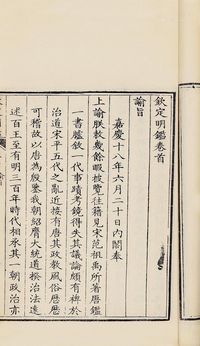 欽定明鑑卷首
諭旨
嘉慶十八年六月二十日內閣奉
上諭朕敕幾餘暇披覽往籍見宋范祖禹所著唐鑑
一書臚敘一代事蹟考鏡得失其議論頗有裨於
治道宋平五代之亂近接有唐其政教風俗歷歷
可稽故以唐為殷鑒我朝紹膺大統道揆治法遠
述百王至有明三百年時代相承其一朝政治亦